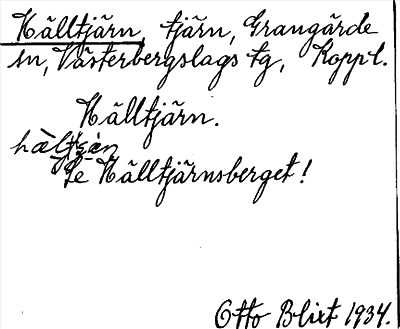 Hälltjärn, tjärn, Grangärde
sn, Västerbergslags tg, Koppl.
Hälltjärn.
Se Hälltjärnsberget!
Otto Blixt 1934.